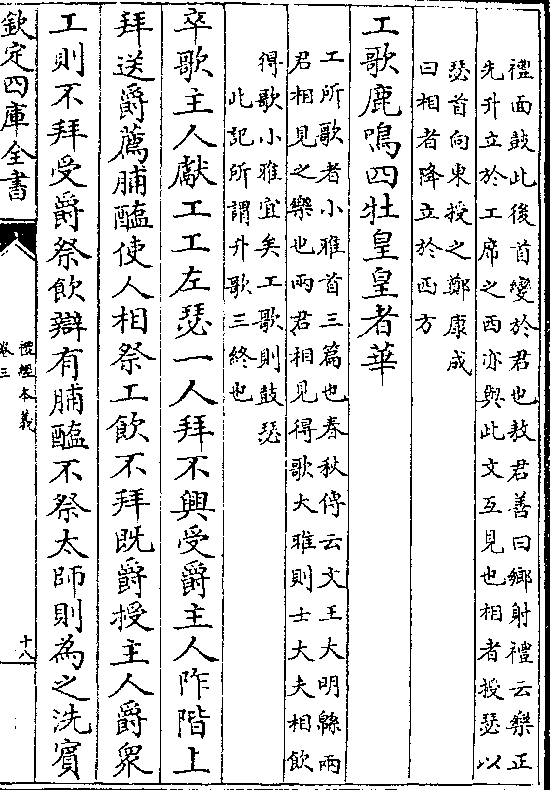 禮面鼓此後首變於君也敖君善曰鄉射禮云樂正
先升立於工席之西亦與此文互見也相者授瑟以
瑟首向東授之鄭康成
曰相者降立於西方
工歌鹿鳴四牡皇皇者華
工所歌者小雅首三篇也春秋傳云文王大明緜兩
君相見之樂也兩君相見得歌大雅則士大夫相飲
得歌小雅宜矣工歌則鼓瑟
此記所謂升歌三終也
卒歌主人獻工工左瑟一人拜不興受爵主人阼階上
拜送爵薦脯醢使人相祭工飲不拜既爵授主人爵衆
工則不拜受爵祭飲辯有脯醢不祭太師則為之洗賓
欽定四庫全書
禮經本義
卷三
十八